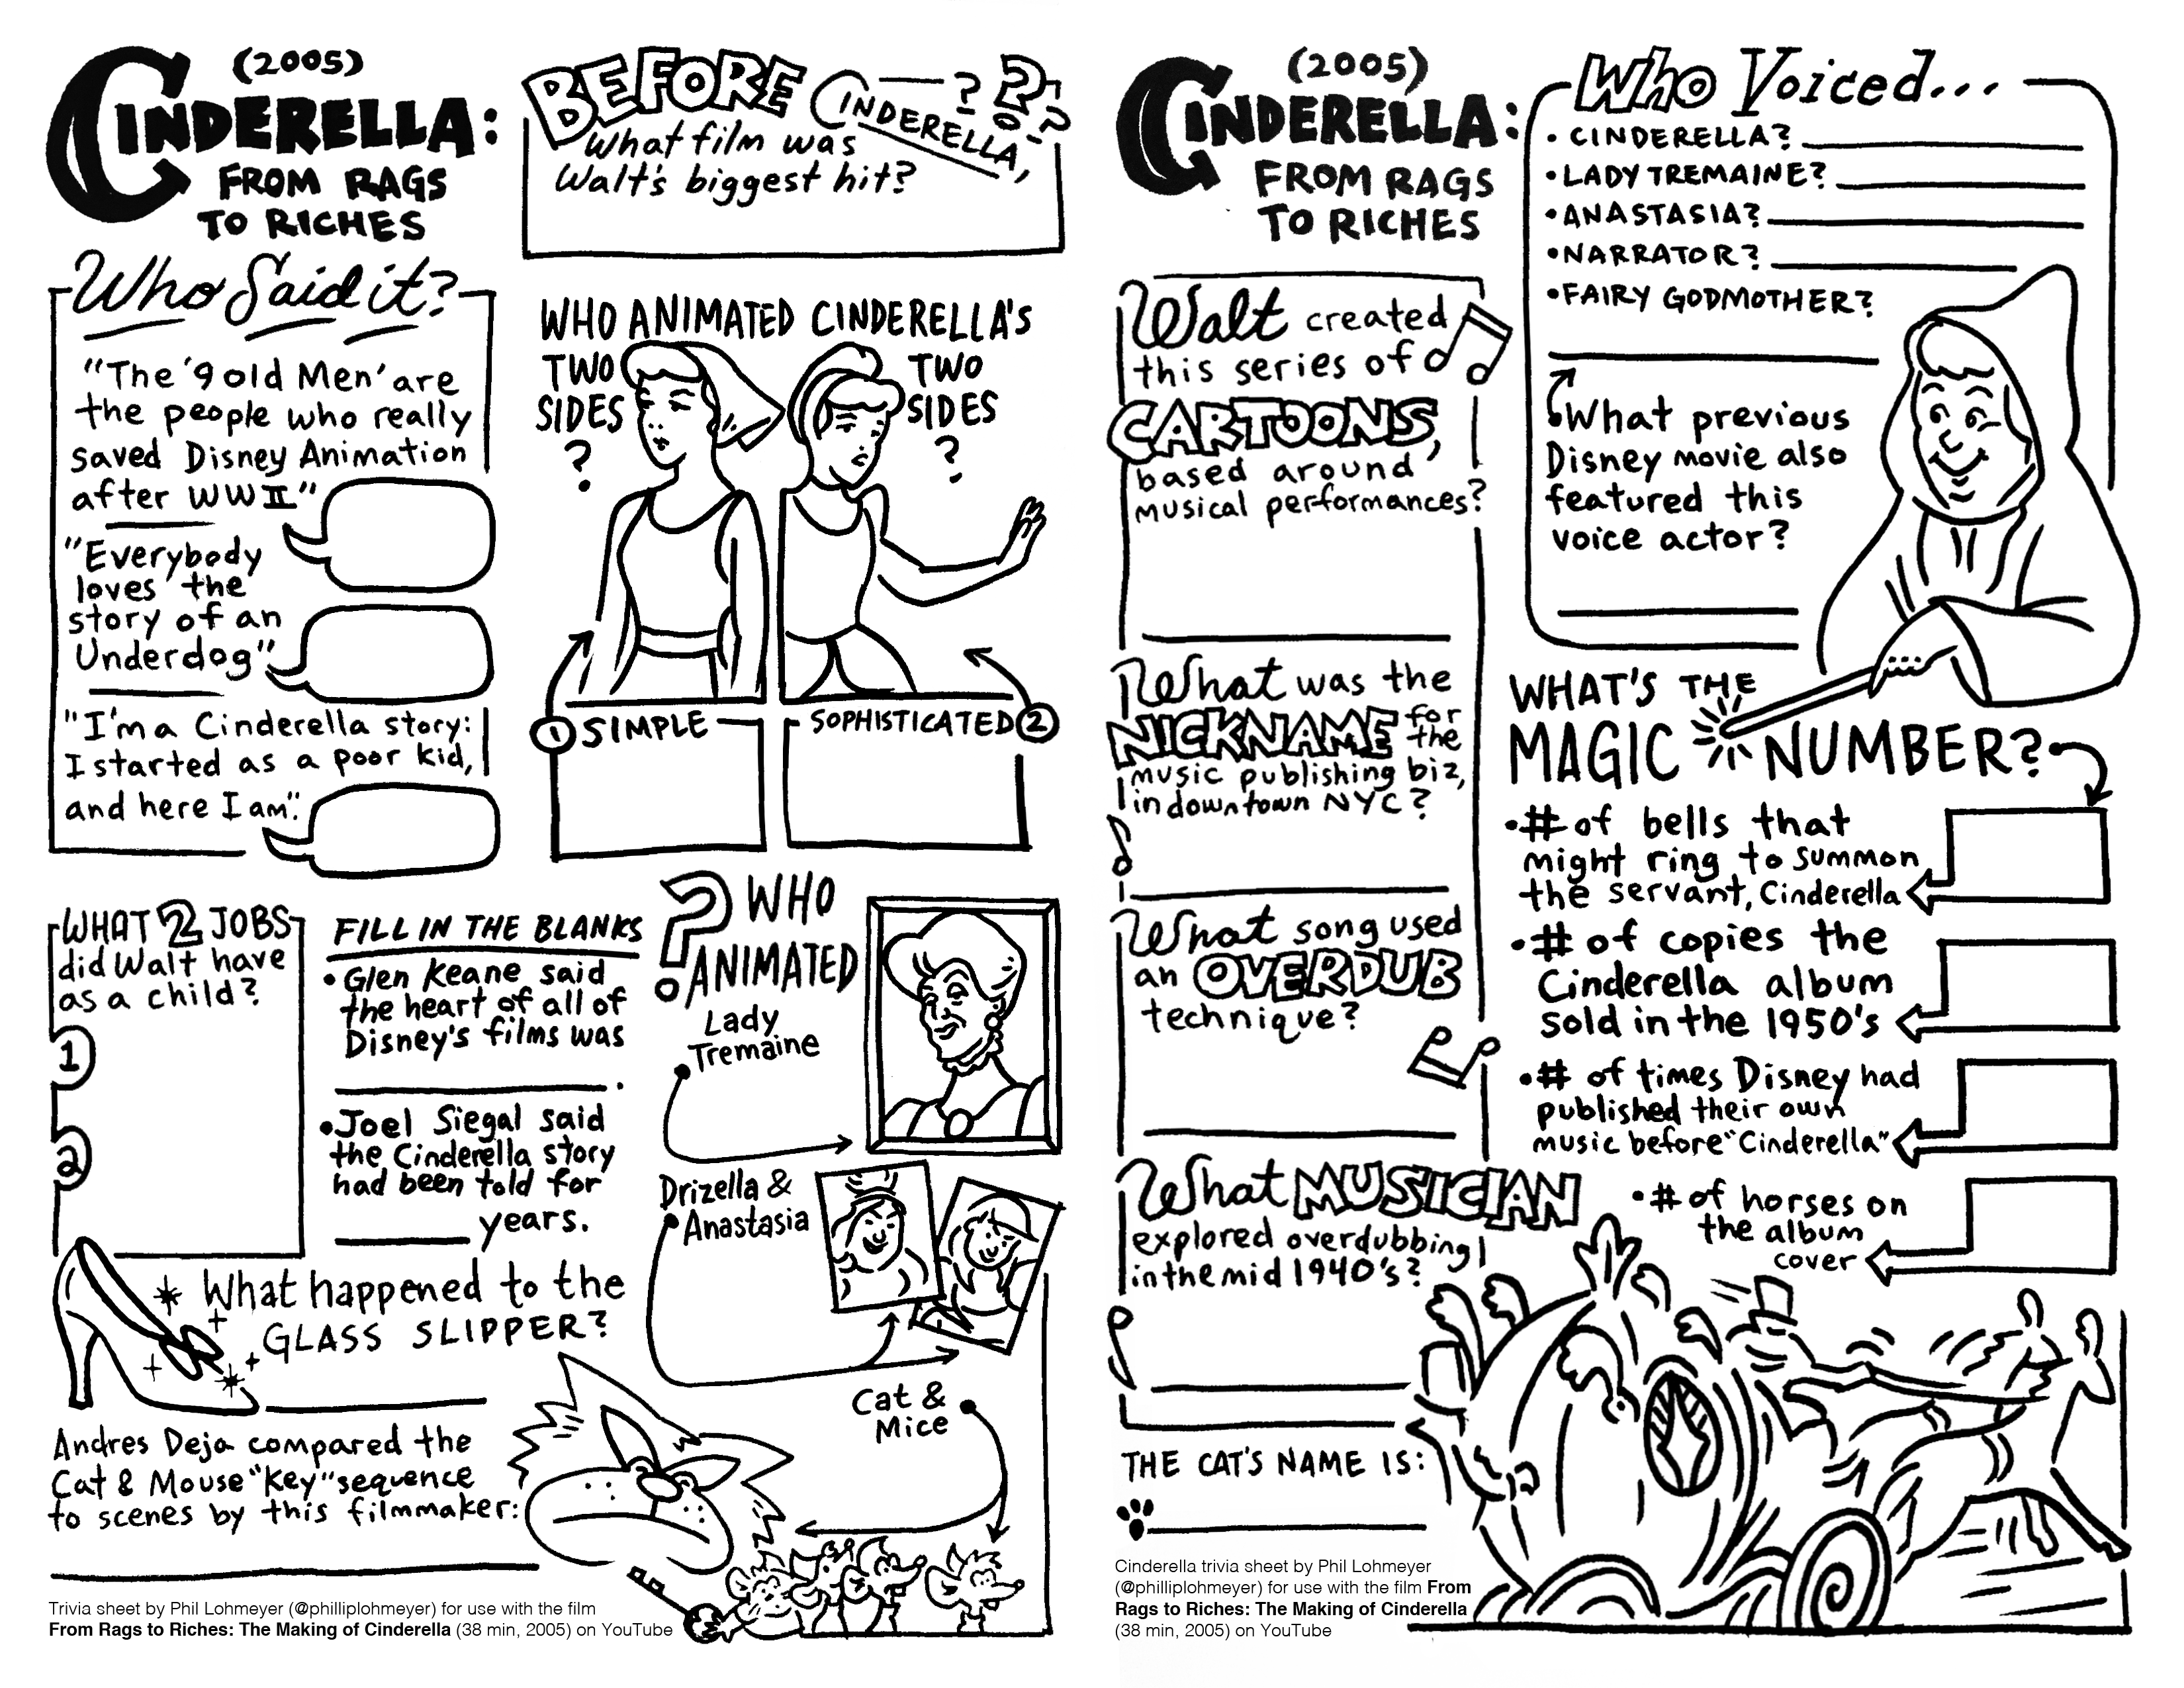 (2005)
CINDERELLA:
FROM RAGS
TO RICHES
Who Said it?
"The '9 old Men' are
the people who really
saved Disney Animation
after WWII"
"Everybody
loves the
story of an
Underdog"
"I'm a Cinderella story:
I started as a poor kid,
and here I am".
BEFORE CINDERELLA, ? ? ?
What film was
Walt's biggest hit?
WHO ANIMATED CINDERELLA'S
TWO TWO
SIDES SIDES
? ?
1 SIMPLE
SOPHISTICATED 2
WHAT 2 JOBS
did Walt have
as a child?
1
2
FILL IN THE BLANKS
• Glen Keane said
the heart of all of
Disney's films was
.
• Joel Siegal said
the Cinderella story
had been told for
years.
? WHO
ANIMATED
Lady
Tremaine
Drizella &
Anastasia
Cat &
Mice
What happened to the
GLASS SLIPPER?
Andres Deja compared the
Cat & Mouse "Key" sequence
to scenes by this filmmaker:
Trivia sheet by Phil Lohmeyer (@philliplohmeyer) for use with the film
From Rags to Riches: The Making of Cinderella (38 min, 2005) on YouTube
(2005)
CINDERELLA:
FROM RAGS
TO RICHES
Walt created
this series of
CARTOONS,
based around
musical performances?
What was the
NICKNAME for
the
music publishing biz,
in downtown NYC?
What song used
an OVERDUB
technique?
What MUSICIAN
explored overdubbing
in the mid 1940's?
THE CAT'S NAME IS:
Who Voiced...
• CINDERELLA?
• LADY TREMAINE?
• ANASTASIA?
• NARRATOR?
• FAIRY GODMOTHER?
What previous
Disney movie also
featured this
voice actor?
WHAT'S THE
MAGIC NUMBER?
• # of bells that
might ring to summon
the servant, Cinderella
• # of copies the
Cinderella album
sold in the 1950's
• # of times Disney had
published their own
music before "Cinderella"
• # of horses on
the album
cover
Cinderella trivia sheet by Phil Lohmeyer
(@philliplohmeyer) for use with the film From
Rags to Riches: The Making of Cinderella
(38 min, 2005) on YouTube